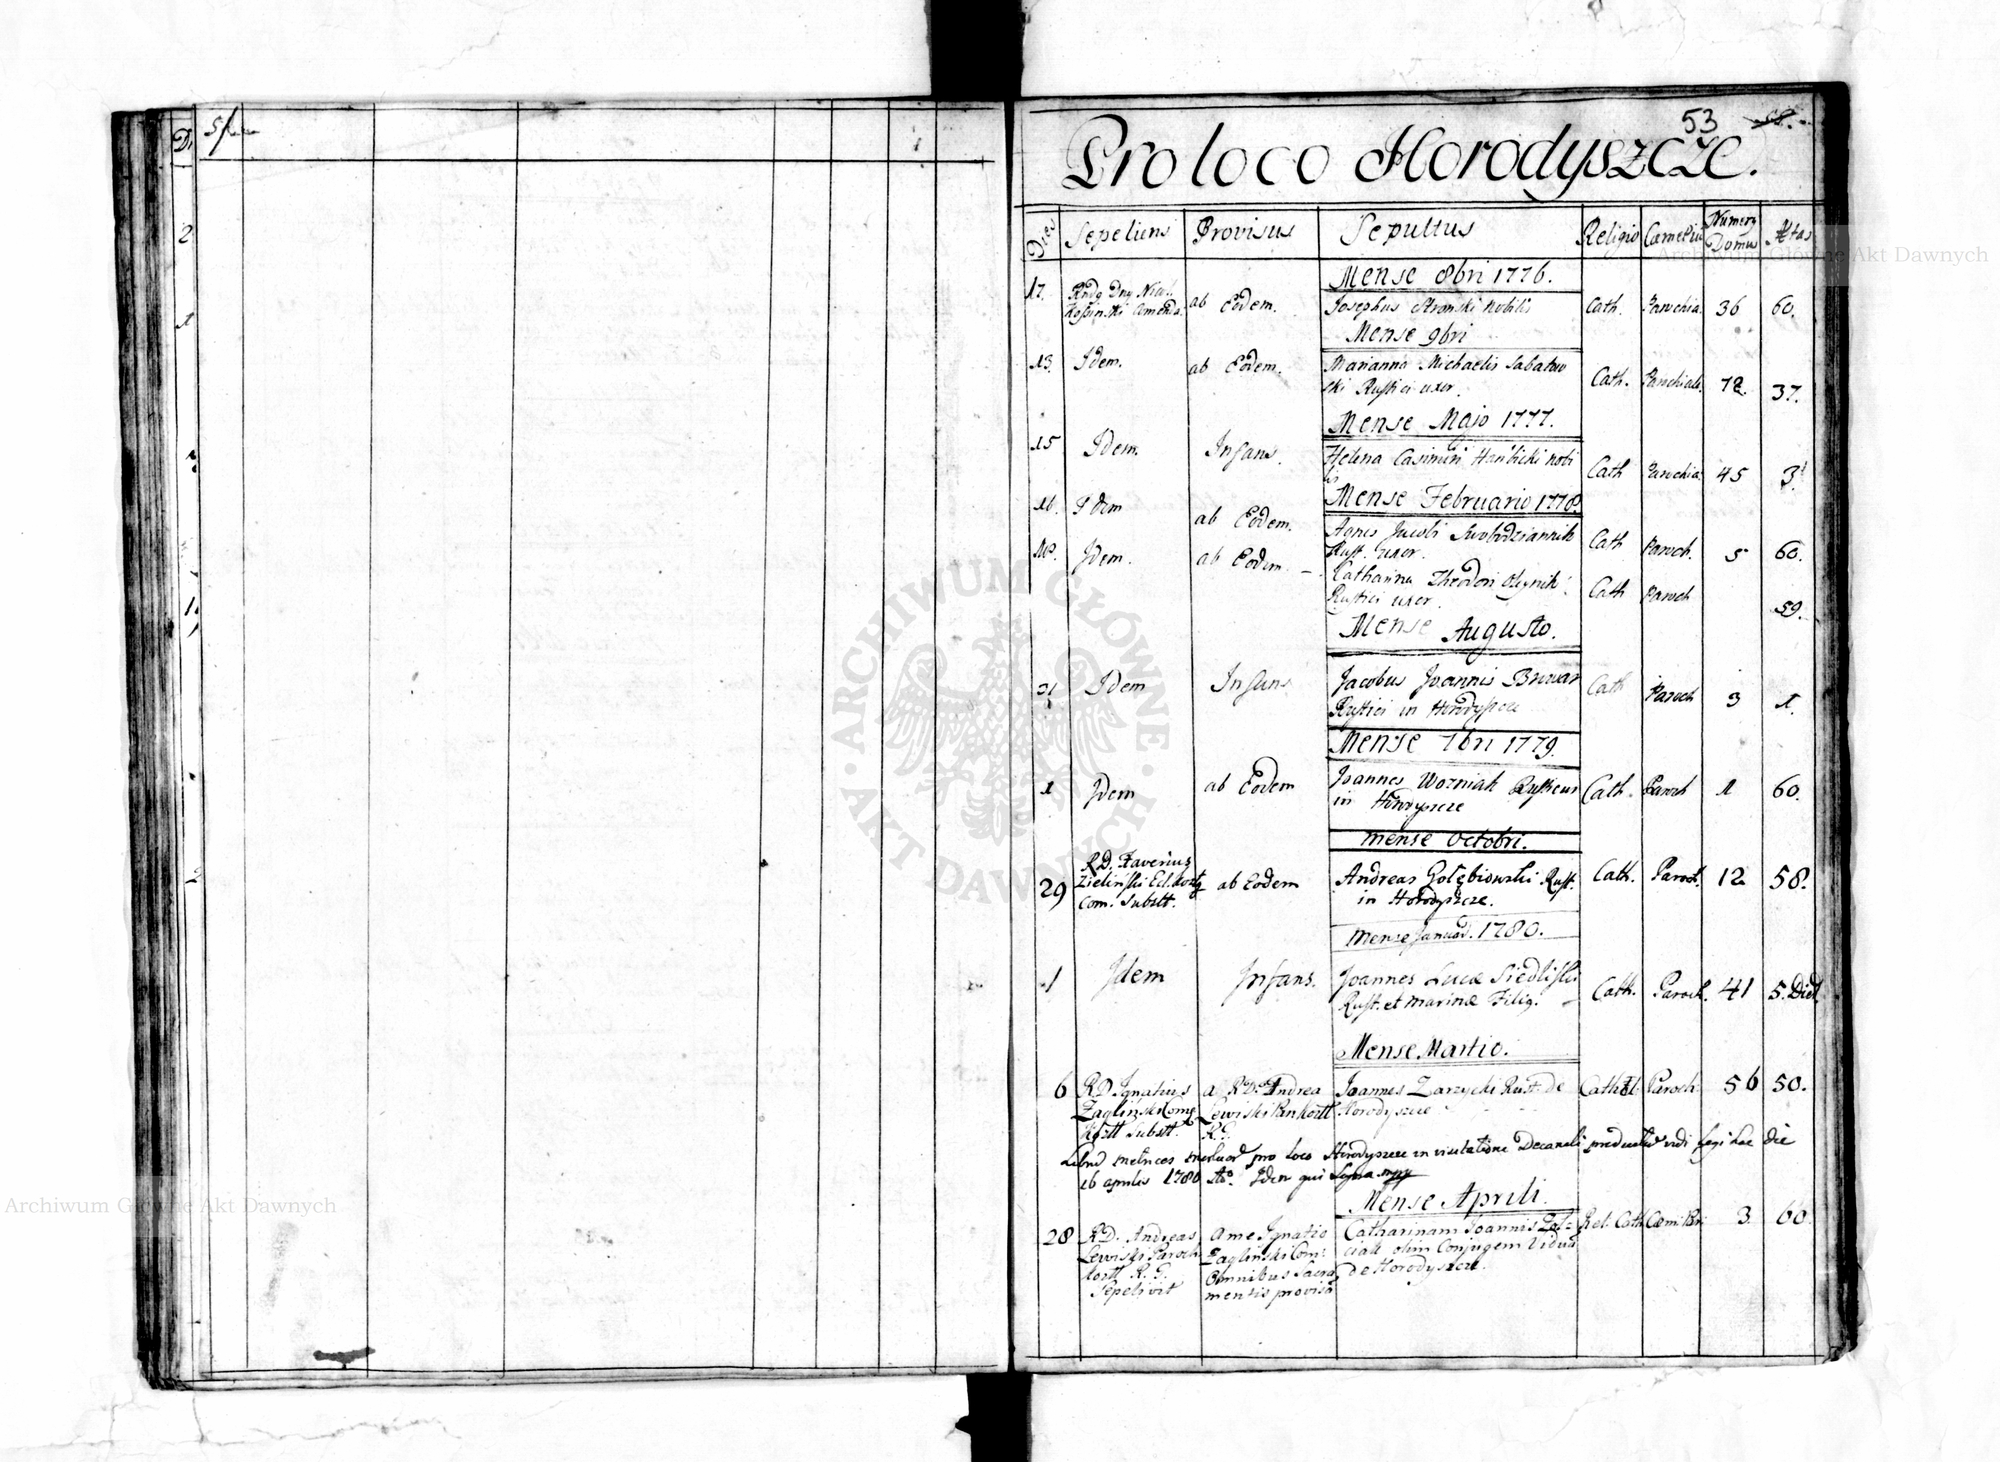 53
Pro loco Horodyszcze.
Dies Sepeliens Provisus Sepultus Religio Cæmeter Numerg Domus Ætas
Mense 8bri 1776.
17. Rndg Dng Nicol. Kossinski Comenda. ab Eodem. Josephus Stronski Nobilis Cath. Parochia. 36 60.
Mense 9bri
13. Idem. ab Eodem. Marianna Michaelis Sabatow
ski Rustici uxor. Cath. Parochiale. 12. 37.
Mense Majo 1777.
15 Idem. Infans. Helena Casimiri Hanbicki nobi
lis Cath Parochia. 45 3.
Mense Februario 1778.
16. Idem ab Eodem. Agnes Jacobi
Rust. uxor. Cath Paroch. 5 60.
Idem. ab Eodem. Catharina Theodori Olejnik
Rustici uxor. Cath Paroch 59.
Mense Augusto.
21 Idem Infans Jacobus Joannis Browar
Rustici in Horodyszcze Cath Paroch 3 1.
Mense 7bri 1779.
1 Idem ab Eodem Joannes Wozniak Rusticus
in Horodyszcze Cath. Paroch 1 60.
mense octobri.
29 R.D. Xaverius
Zieliński Ecl. Kortg
Com. Substt. ab Eodem Andreas Golębiowski Rust.
in Horodyszcze. Cath. Paroch. 12 58.
Mense Januar. 1780.
1 Idem Infans. Joannes Lucæ Siedlisski
Rust. et Marinæ Filig. Cath. Paroch. 41 5. Dier.
Mense Martio.
6 R.D. Ignatius
Zagliński Comg
Kortt Substt. a R.D. Andrea
Lewiski Par. Kortt
R.G. Joannes Zarzycki Rust. de
Horodyszcze Cath. Paroch. 56 50.
Libru metrices mortuor pro loco Horodyszcze in visitatione Decanali productu vidi legi hac die
16 aprilis 1780 Ao. Idem qui supra mpp
Mense Aprili.
28 R.D. Andreas
Lewiski Paroch
Kortt R.G.
Sepelivit A me Ignatio
Zagliński Com:
Omnibus Sacra
mentis provisa Catharinam Joannis Pol=
ciak olim Conjugem Vidua
de Horodyszcze. Rel: Cath Cæmi Par: 3 60
ARCHIWUM GŁÓWNE AKT DAWNYCH
Archiwum Główne Akt Dawnych
Archiwum Główne Akt Dawnych